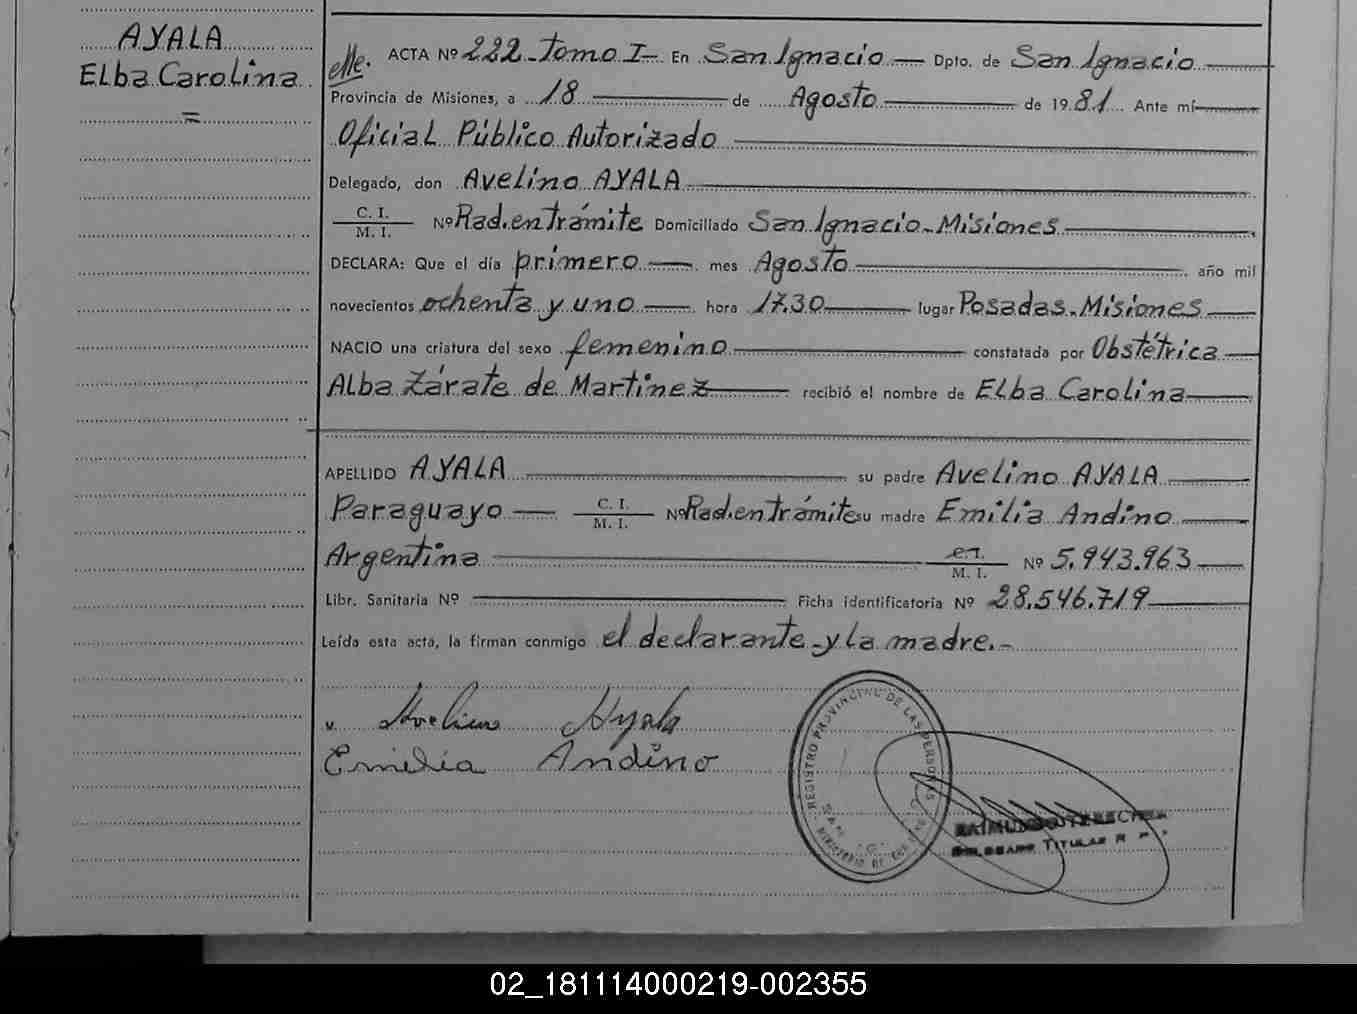 AYALA
Elba Carolina
=
ACTA Nº 222_Tomo I_ En San Ignacio Dpto. de San Ignacio
Provincia de Misiones, a 18 de Agosto de 1981 Ante mí
Oficial Público Autorizado
Delegado, don Avelino AYALA
C. I.
M. I. Nº Rad.en trámite Domiciliado San Ignacio-Misiones
DECLARA: Que el día primero mes Agosto año mil
novecientos ochenta y uno hora 17.30 lugar Posadas-Misiones
NACIO una criatura del sexo femenino constatada por Obstétrica
Alba Zárate de Martinez recibió el nombre de Elba Carolina
APELLIDO AYALA su padre Avelino AYALA
Paraguayo C. I.
M. I. Nº Rad.en trámite su madre Emilia Andino
Argentina C. I.
M. I. Nº 5.943.963
Libr. Sanitaria Nº Ficha identificatoria Nº 28.546.719
Leída esta acta, la firman conmigo el declarante-y la madre.-
Avelino Ayala
Emilia Andino
REGISTRO PROVINCIAL DE LAS PERSONAS
SAN
MINISTERIO DE GOB
TITULAR R P
02_181114000219-002355